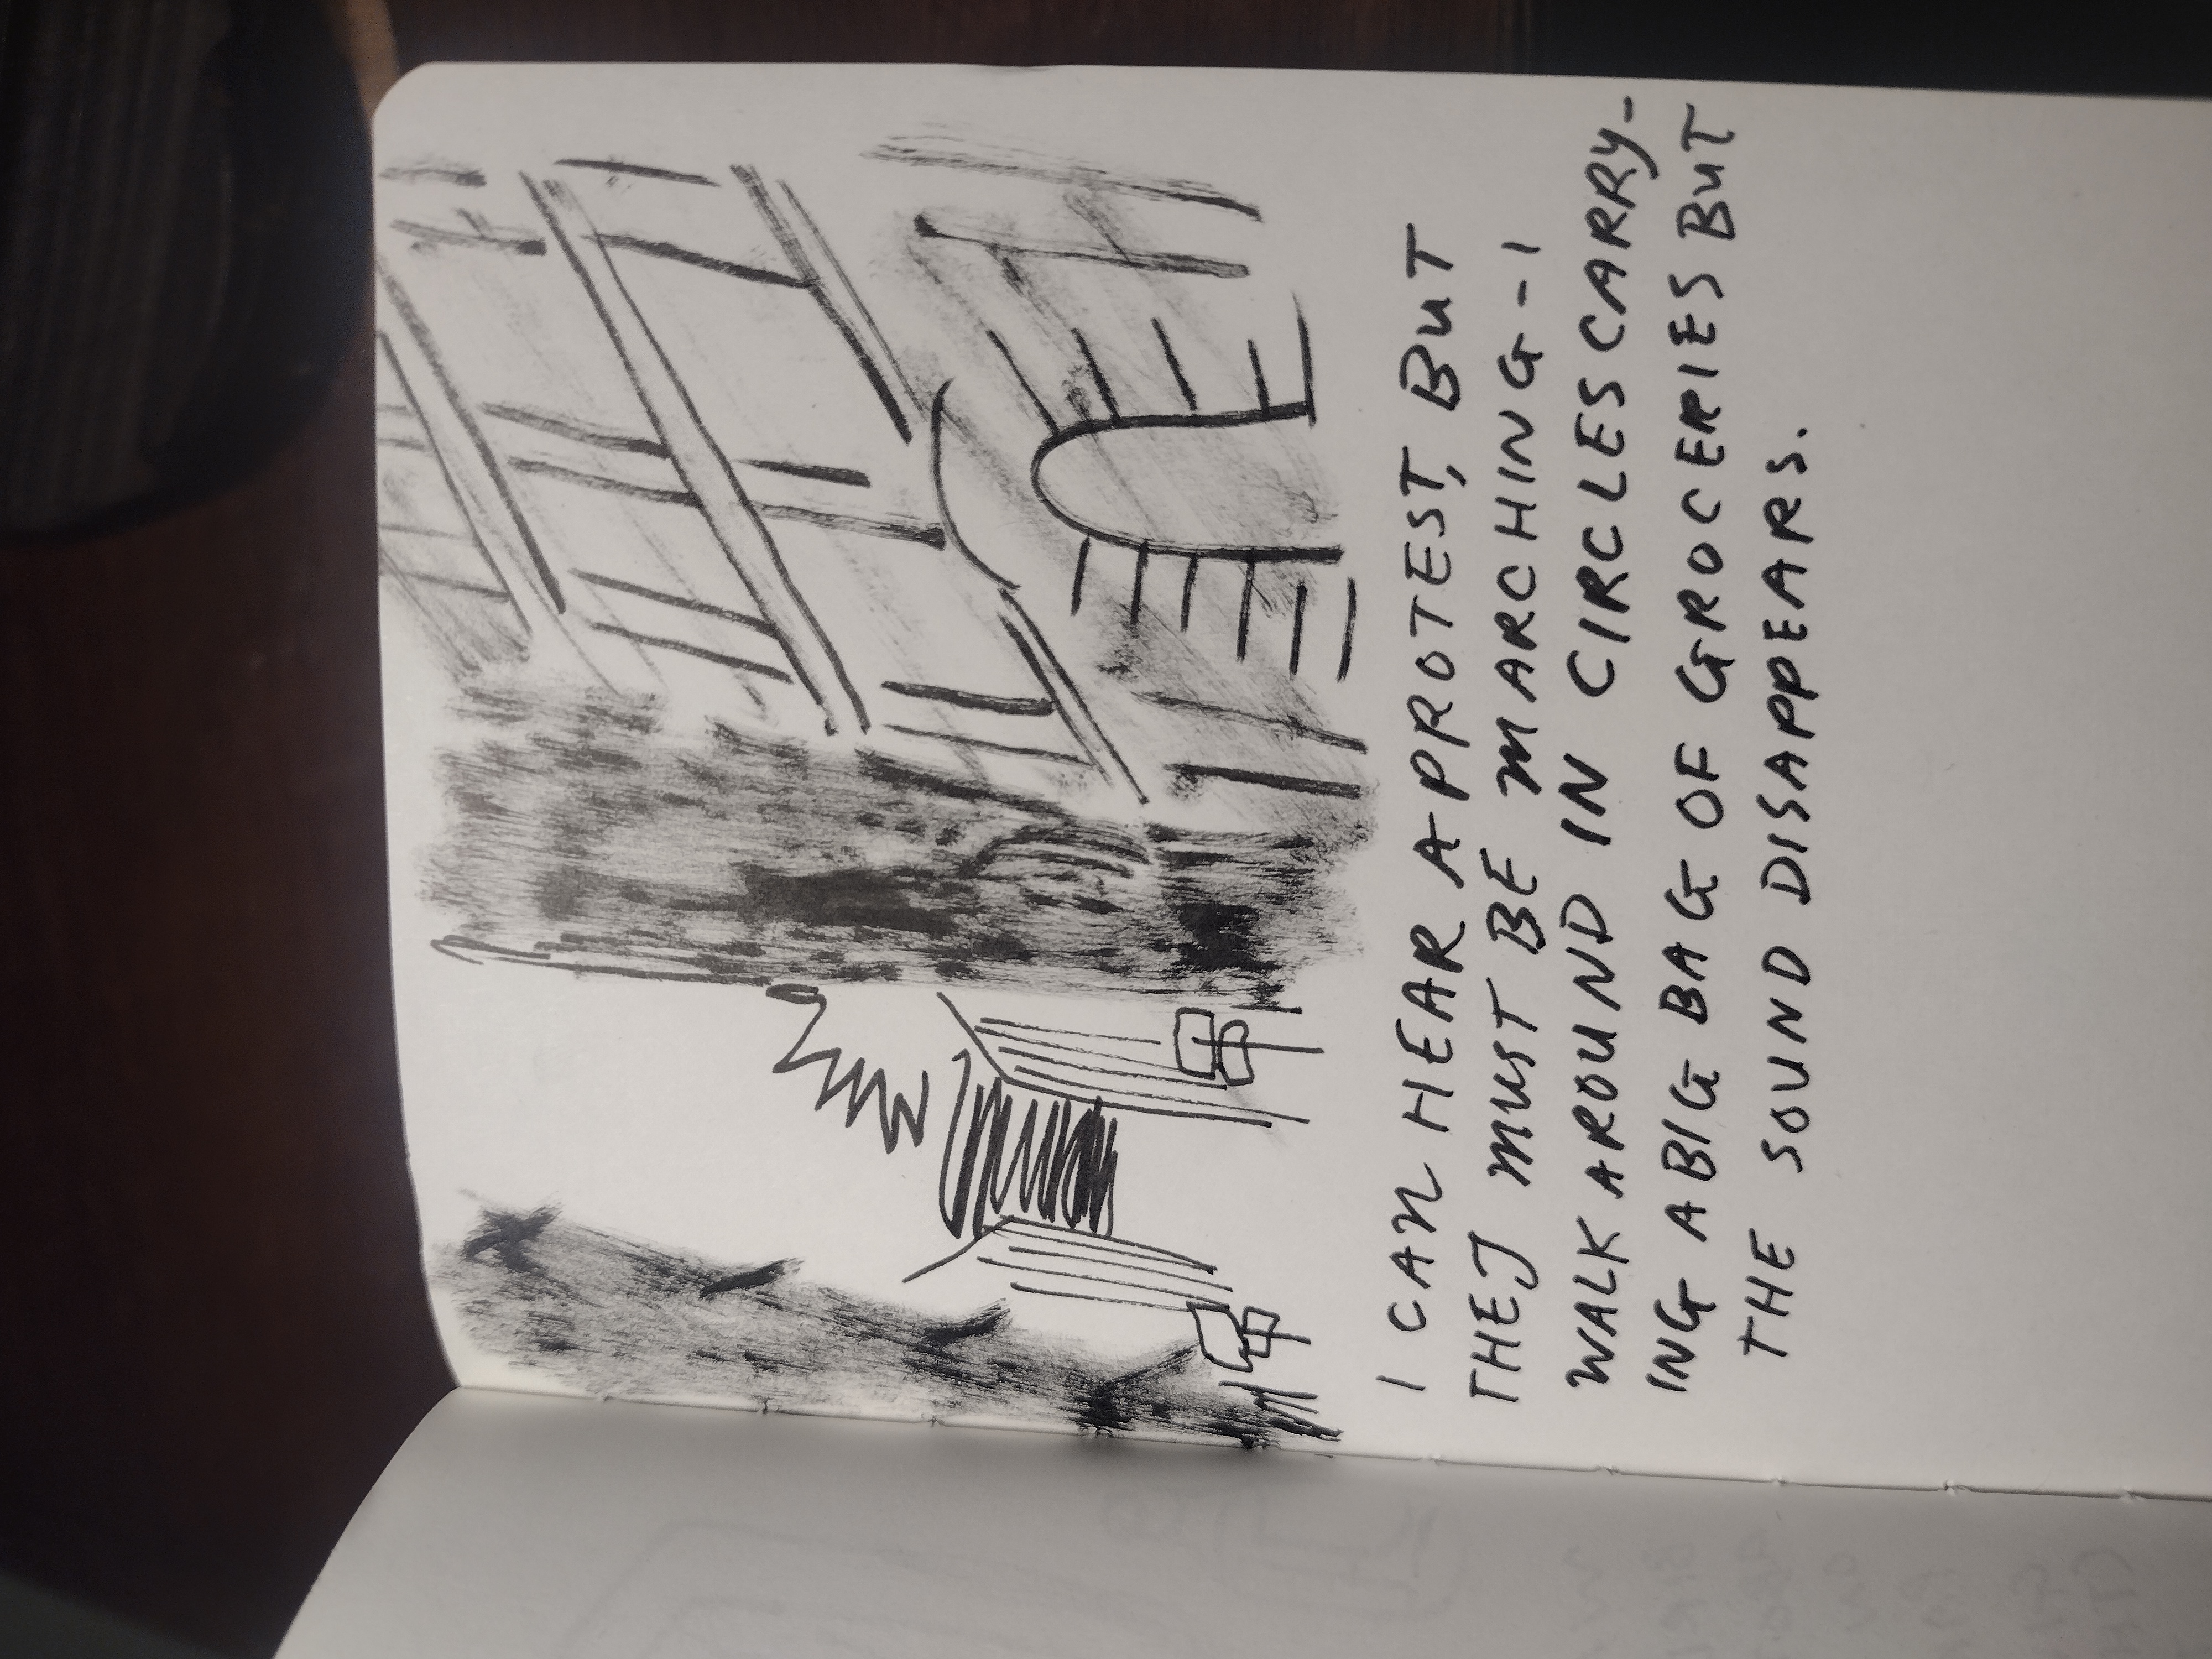 I CAN HEAR A PROTEST, BUT
THEY MUST BE MARCHING - I
WALK AROUND IN CIRCLES CARRY-
ING A BIG BAG OF GROCERIES BUT
THE SOUND DISAPPEARS.